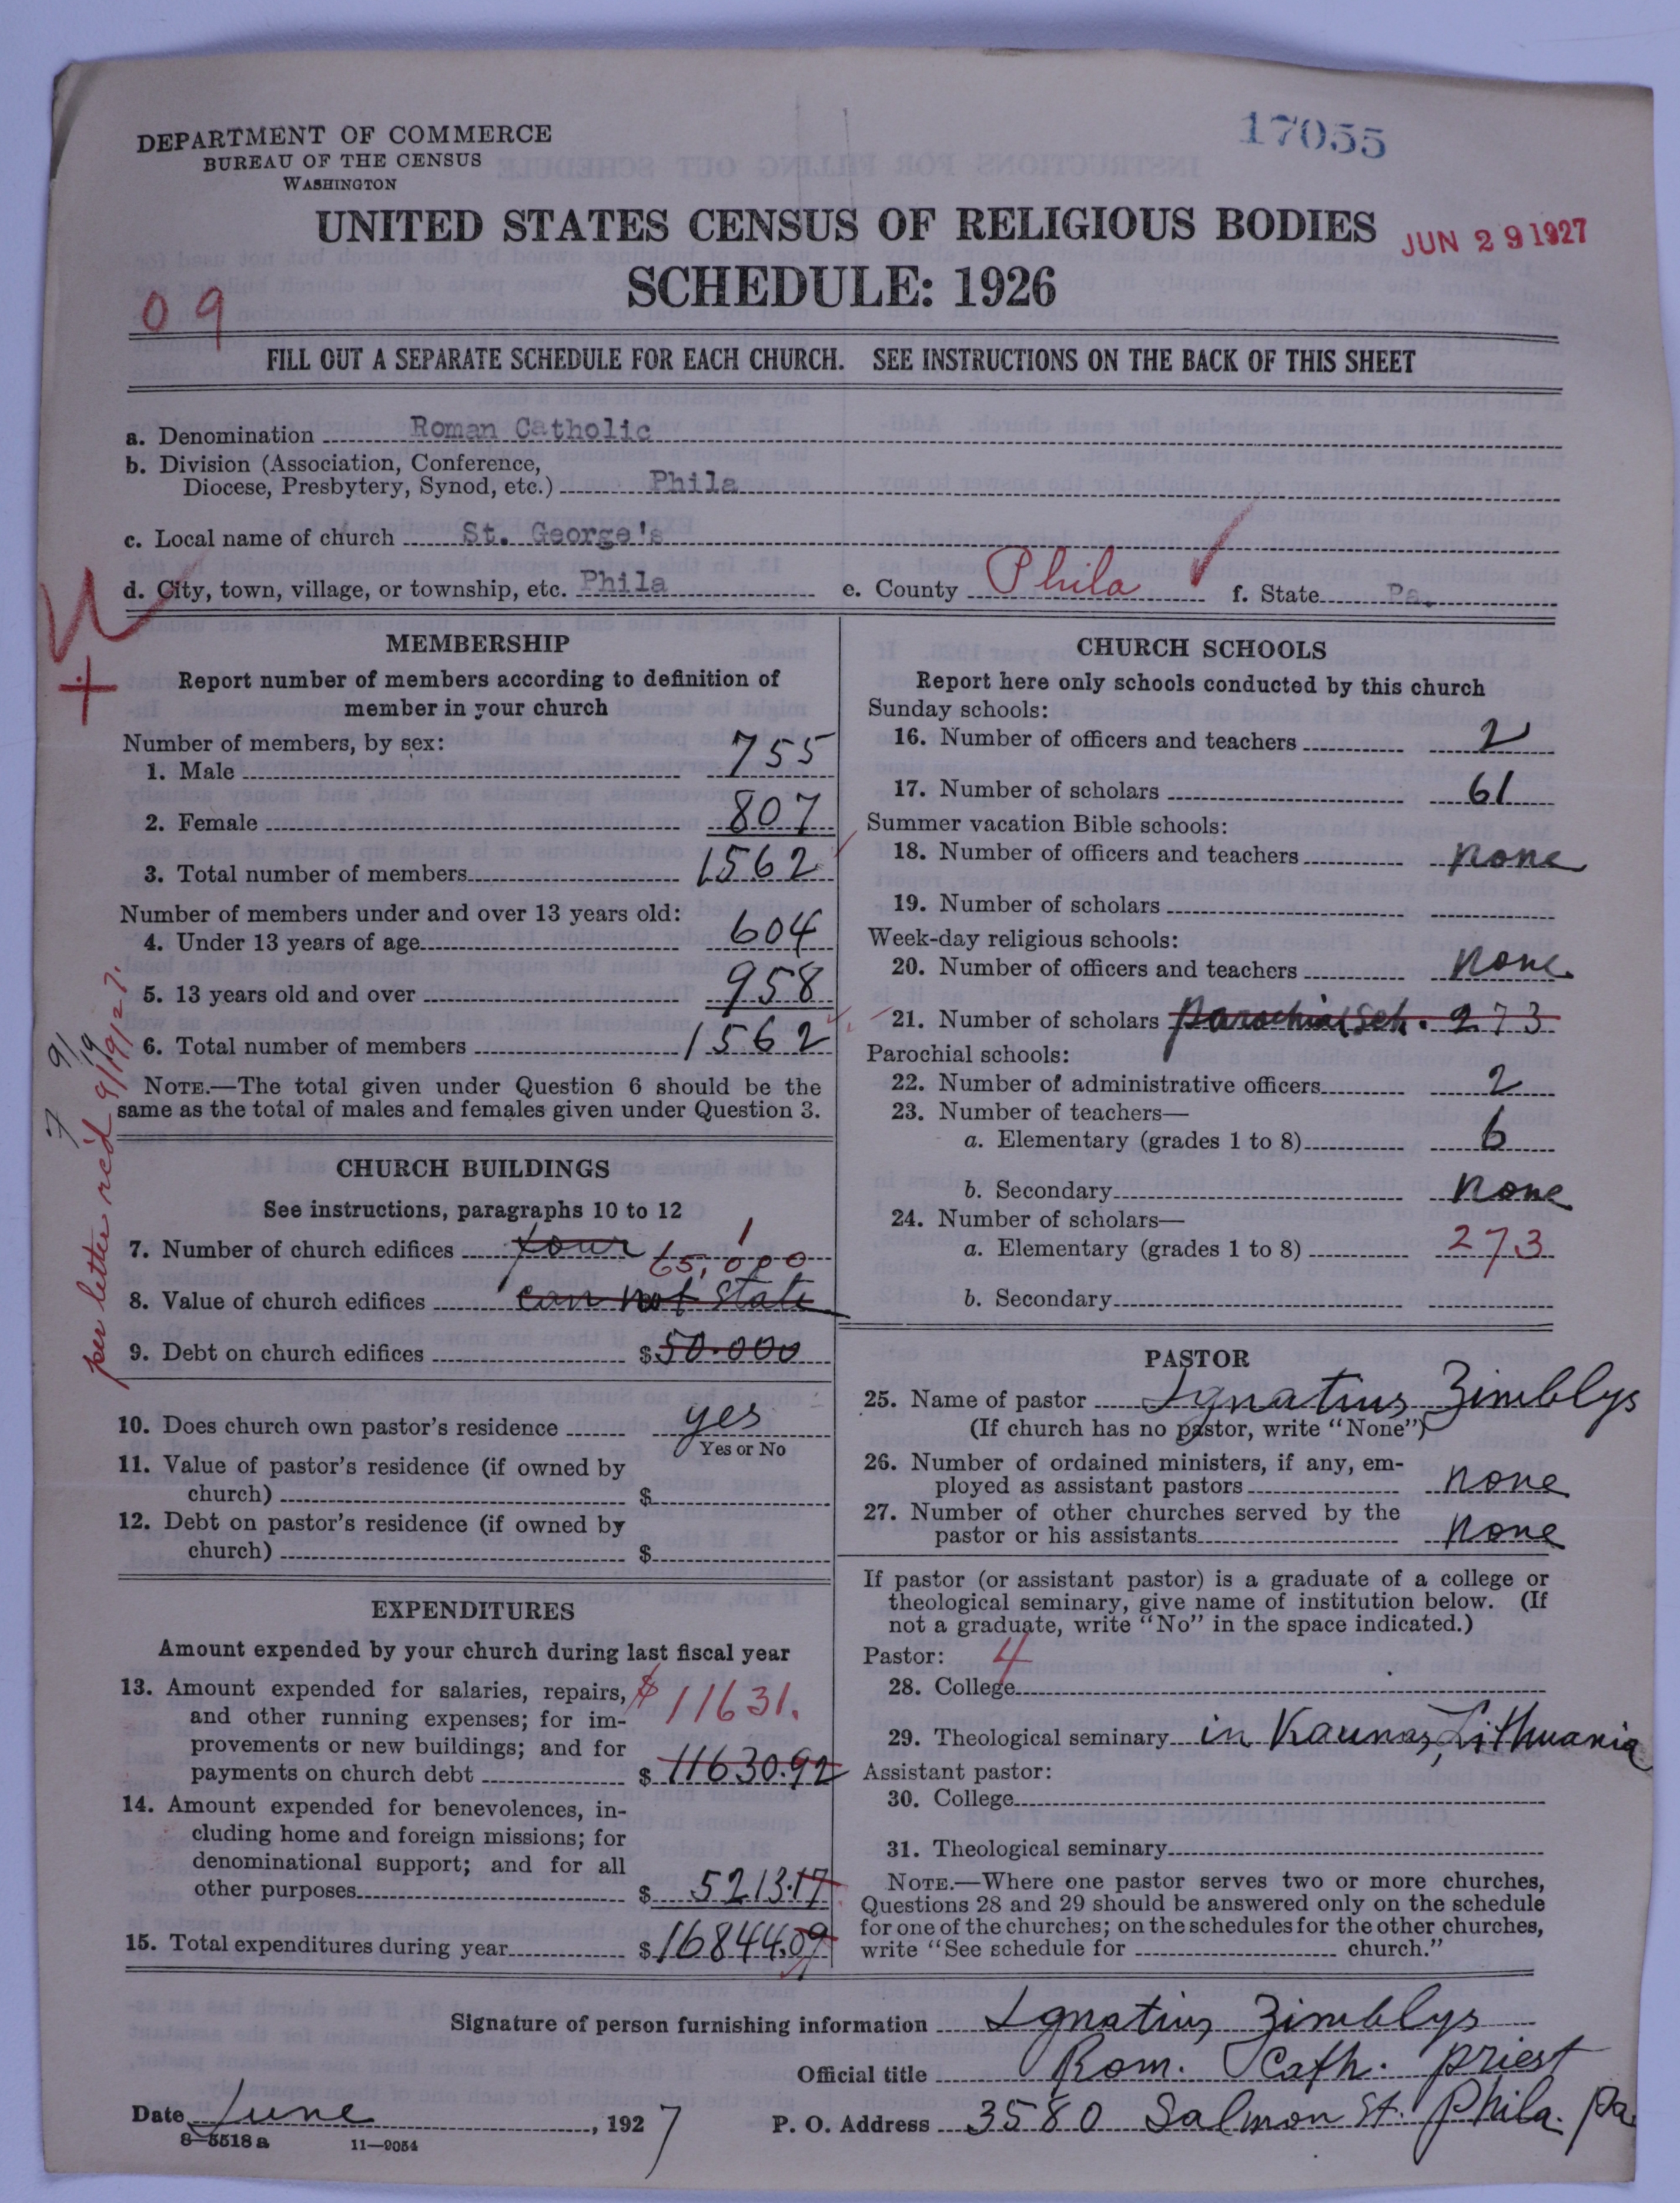 DEPARTMENT OF COMMERCE
BUREAU OF THE CENSUS
WASHINGTON
17055
UNITED STATES CENSUS OF RELIGIOUS BODIES
JUN 29 1927
SCHEDULE: 1926
09
FILL OUT A SEPARATE SCHEDULE FOR EACH CHURCH. SEE INSTRUCTIONS ON THE BACK OF THIS SHEET
a. Denomination Roman Catholic
b. Division (Association, Conference,
Diocese, Presbytery, Synod, etc.) Phila
c. Local name of church St. George's
d. City, town, village, or township, etc. Phila e. County Phila f. State Pa.
MEMBERSHIP
Report number of members according to definition of
member in your church
Number of members, by sex:
1. Male 755
2. Female 807
3. Total number of members 1562
Number of members under and over 13 years old:
4. Under 13 years of age 604
5. 13 years old and over 958
6. Total number of members 1562
NOTE.—The total given under Question 6 should be the
same as the total of males and females given under Question 3.
per letter rec'd 9/19/27.
7 9/19
CHURCH BUILDINGS
See instructions, paragraphs 10 to 12
7. Number of church edifices four 1
65,000
8. Value of church edifices can not state
9. Debt on church edifices $50.000
10. Does church own pastor's residence yes
Yes or No
11. Value of pastor's residence (if owned by
church) $
12. Debt on pastor's residence (if owned by
church) $
EXPENDITURES
Amount expended by your church during last fiscal year
13. Amount expended for salaries, repairs, $11631.
and other running expenses; for im-
provements or new buildings; and for
payments on church debt $11630.92
14. Amount expended for benevolences, in-
cluding home and foreign missions; for
denominational support; and for all
other purposes $5213.17
15. Total expenditures during year $16844.09
CHURCH SCHOOLS
Report here only schools conducted by this church
Sunday schools:
16. Number of officers and teachers 2
17. Number of scholars 61
Summer vacation Bible schools:
18. Number of officers and teachers none
19. Number of scholars
Week-day religious schools:
20. Number of officers and teachers none
21. Number of scholars parochial sch. 273
Parochial schools:
22. Number of administrative officers 2
23. Number of teachers—
a. Elementary (grades 1 to 8) 6
b. Secondary none
24. Number of scholars—
a. Elementary (grades 1 to 8) 273
b. Secondary
PASTOR
25. Name of pastor Ignatius Zimblys
(If church has no pastor, write "None")
26. Number of ordained ministers, if any, em-
ployed as assistant pastors none
27. Number of other churches served by the
pastor or his assistants none
If pastor (or assistant pastor) is a graduate of a college or
theological seminary, give name of institution below. (If
not a graduate, write "No" in the space indicated.)
Pastor: 4
28. College
29. Theological seminary in Kaunas, Lithuania
Assistant pastor:
30. College
31. Theological seminary
NOTE.—Where one pastor serves two or more churches,
Questions 28 and 29 should be answered only on the schedule
for one of the churches; on the schedules for the other churches,
write "See schedule for church."
Signature of person furnishing information Ignatius Zimblys
Official title Rom. Cath. priest
Date June, 1927 P. O. Address 3580 Salmon St. Phila. Pa
8—5518a 11—9054